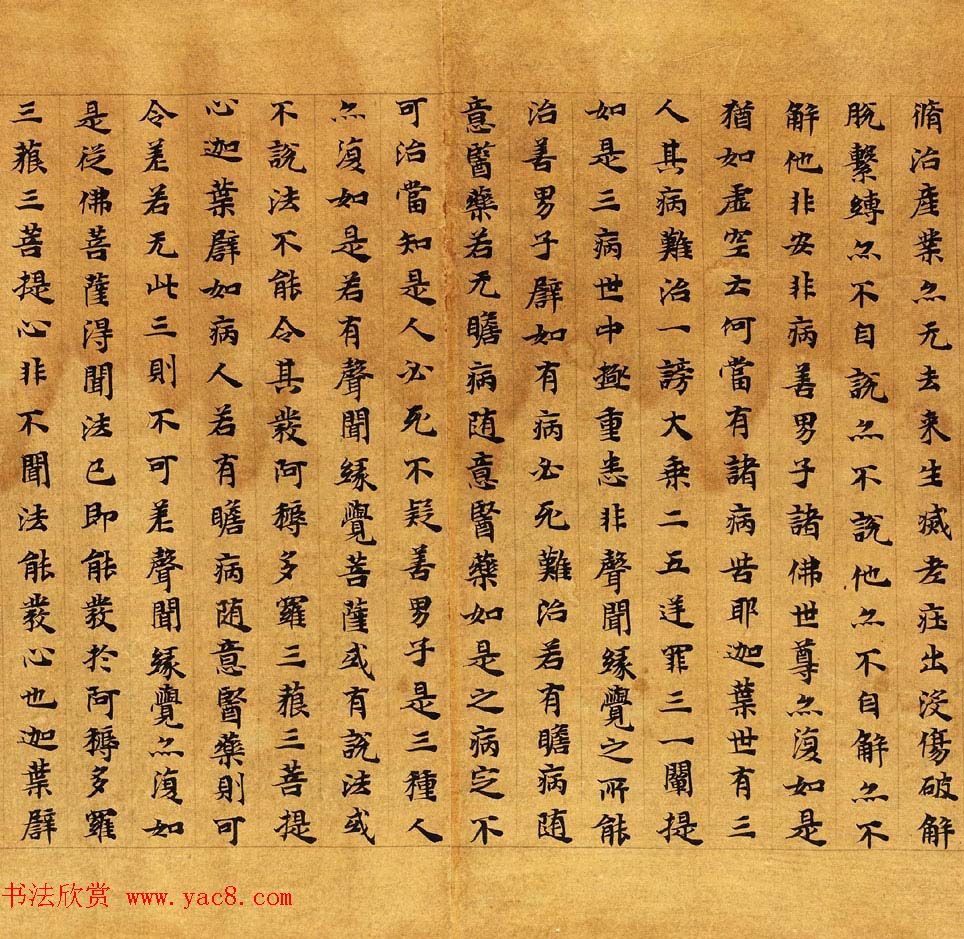 脩治産業亦无去来生滅老壯出没傷破解
脱繫縛亦不自説亦不説他亦不自解亦不
解他非安非病善男子諸佛世尊亦復如是
猶如虚空云何當有諸病苦耶迦葉世有三
人其病難治一謗大乗二五逆罪三一闡提
如是三病世中㨿重悉非聲聞緣覺之所能
治善男子譬如有病必死難治若有瞻病随
意醫藥若无瞻病随意醫藥如是之病定不
可治當知是人必死不疑善男子是三種人
亦復如是若有聲聞緣覺菩薩或有説法或
不説法不能令其發阿耨多羅三藐三菩提
心迦葉譬如病人若有瞻病随意醫藥則可
令差若无此三則不可差聲聞緣覺亦復如
是從佛菩薩得聞法已即能發於阿耨多羅
三藐三菩提心非不聞法能發心也迦葉譬
书法欣赏 www.yac8.com